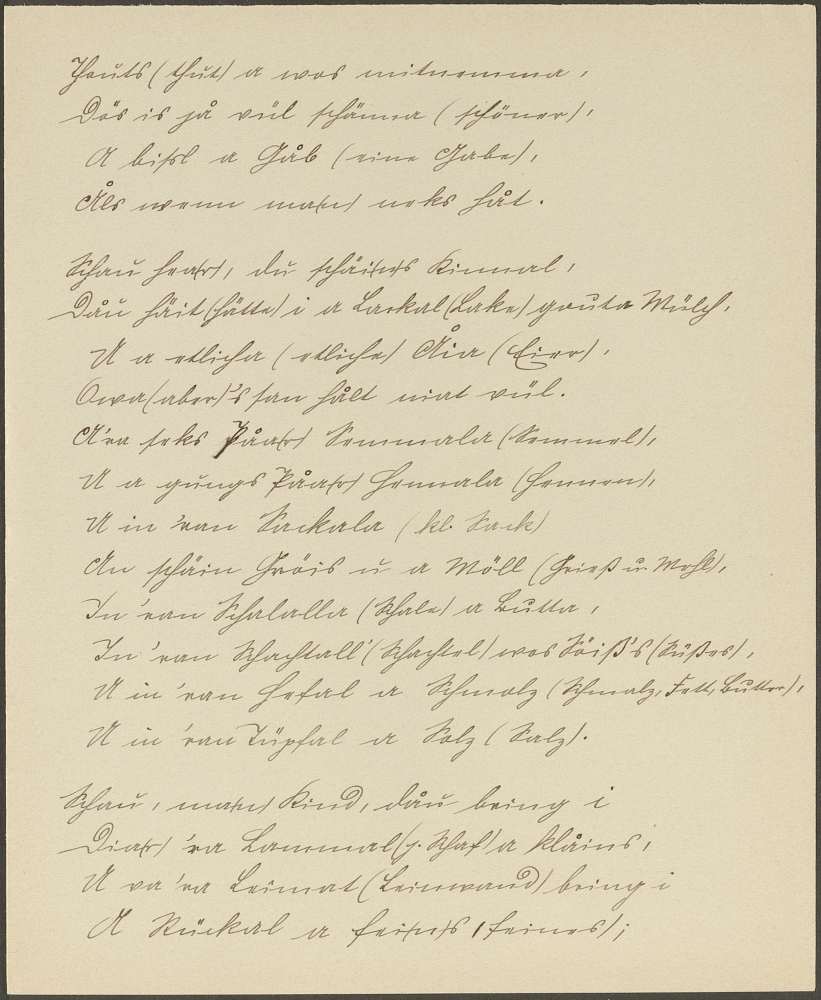 Thouts (thut) a wos mitnemma,
Dös is jå vül schänna (schöner),
A bissl a Gåb (eine Gabe),
Åls wenn ma(n) neks håt.
Schau hea(r), du schäi(n)s Kinnal,
Dåu häit (hätte) i a Lackal (Lake) gouta Mülch,
U a etlicha (etliche) Åia (Eier),
Owa (aber)'s san hålt niat vül.
A'ra seks Påa(r) Semmala (Semmel),
U a gungs Påa(r) Hennala (Hennen),
U in 'ran Sackala (kl. Sack)
An schäin Gröis u a Möll (Grieß u. Mehl),
In 'ran Schalalla (Schale) a Butta,
In 'ran Schachtall' (Schachtel) wos Söiß's (Süßes),
U in 'ran Hefal a Schmolz (Schmalz, Fett, Butter),
U in 'ran Tüpfal a Solz (Salz).
Schau, ma(n) Kind, dåu bring i
Dia(r) 'ra Lammal (j. Schaf) a klåins,
U va 'ra Leimat (Leinwand) bring i
A Stückal a fei(n)s (feines);